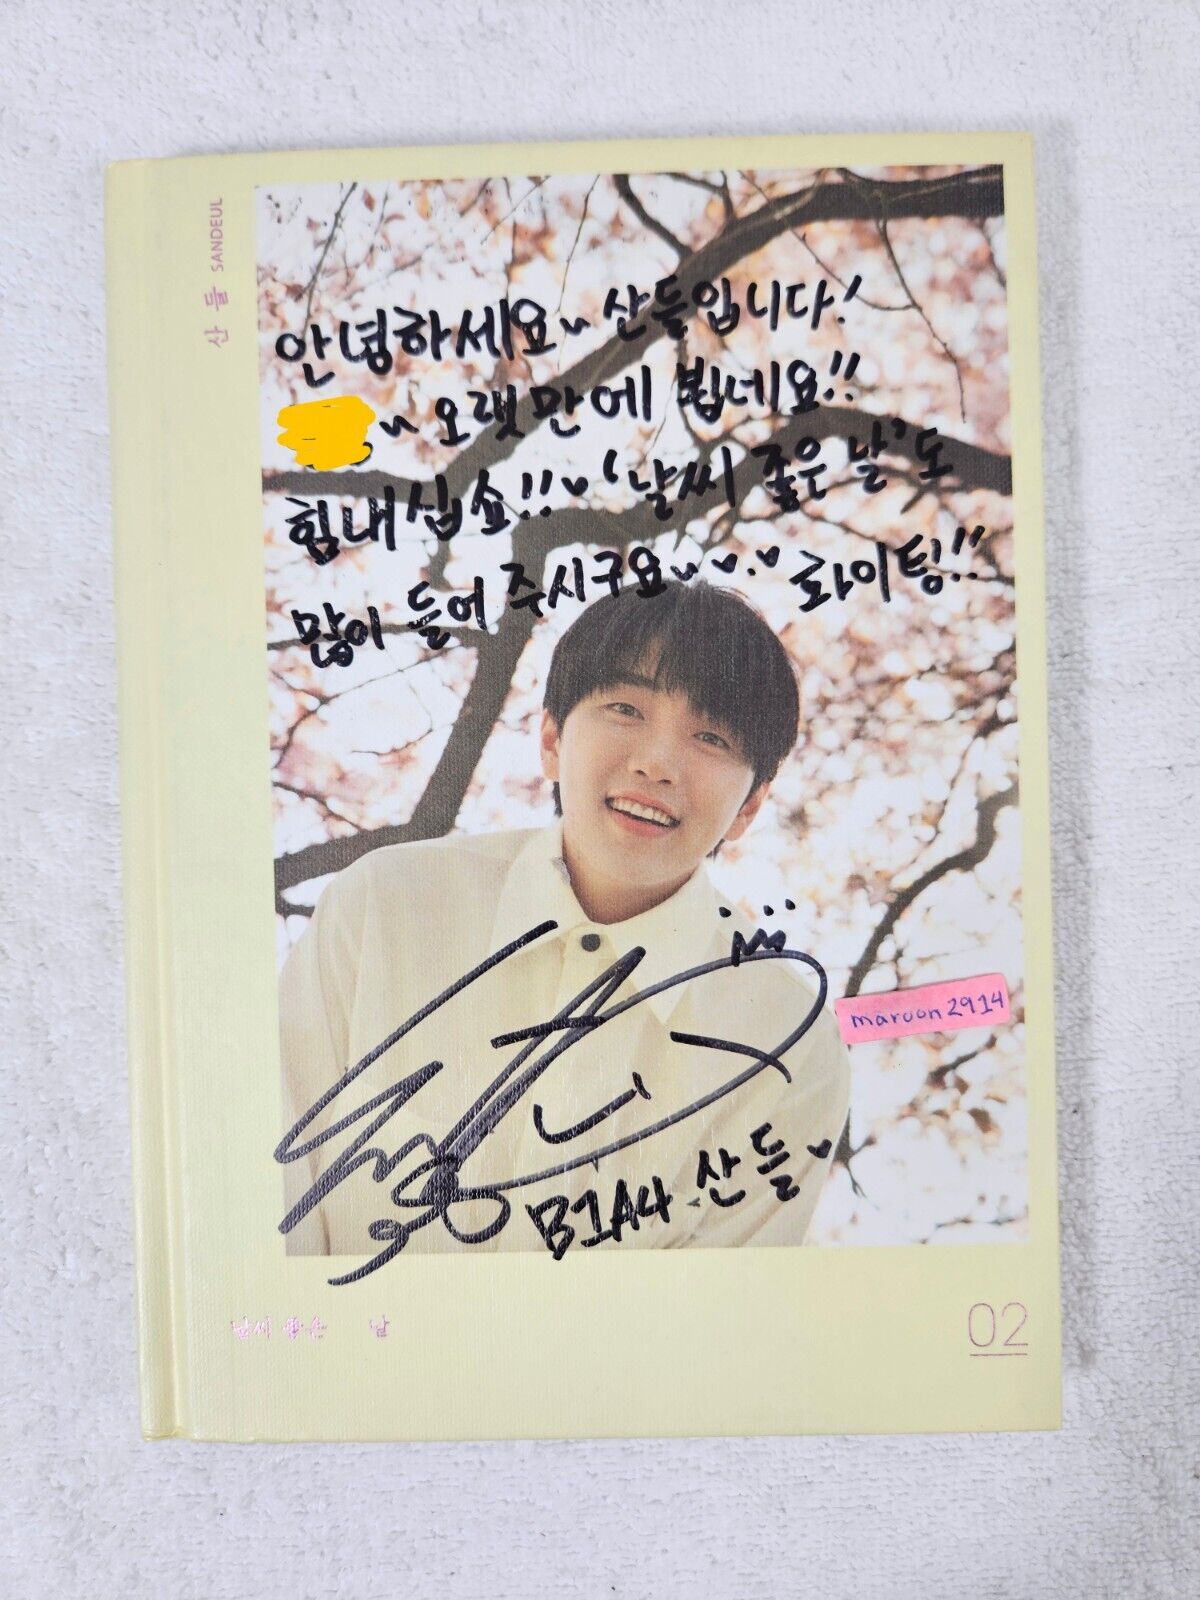 산들 SANDEUL
안녕하세요~ 산들입니다!
~ 오랫만에 뵙네요!!
힘내십쇼!!♥ '날씨 좋은 날'도
많이 들어 주시구요~♥.♥ 화이팅!!
maroon2914
B1A4 산들♥
날씨 좋은 날
02